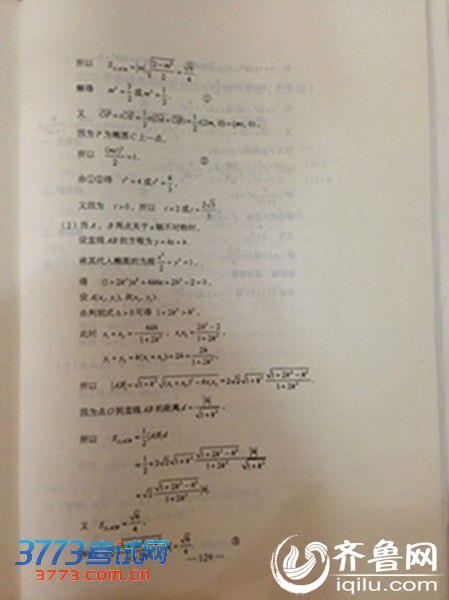 所以 S△AOB = |m|√((2-m²)/2) = √6/4.
解得 m² = 3/2 或 m² = 1/2. ①
又 OP = tOE = 1/2 t(OA+OB) = 1/2 t(2m, 0) = (mt, 0),
因为 P 为椭圆 C 上一点,
所以 (mt)²/2 = 1. ②
由①②得 t² = 4 或 t² = 4/3.
又因为 t>0, 所以 t = 2 或 t = 2√3/3.
(2) 当 A, B 两点关于 x 轴不对称时,
设直线 AB 的方程为 y = kx + h.
将其代入椭圆的方程 x²/2 + y² = 1,
得 (1+2k²)x² + 4khx + 2h² - 2 = 0.
设 A(x₁, y₁), B(x₂, y₂).
由判别式 Δ>0 可得 1+2k² > h².
此时 x₁+x₂ = -4kh/(1+2k²), x₁x₂ = (2h²-2)/(1+2k²),
y₁+y₂ = k(x₁+x₂)+2h = 2h/(1+2k²).
所以 |AB| = √(1+k²)√((x₁+x₂)²-4x₁x₂) = 2√2√(1+k²) √(1+2k²-h²)/(1+2k²).
因为点 O 到直线 AB 的距离 d = |h|/√(1+k²),
所以 S△AOB = 1/2|AB|d
= 1/2 × 2√2√(1+k²) √(1+2k²-h²)/(1+2k²) |h|/√(1+k²)
= √2 √(1+2k²-h²)/(1+2k²) |h|.
又 S△AOB = √6/4,
= √6/4. ③
— 129 —
3773考试网
3773.com.cn
齐鲁网
iqilu.com